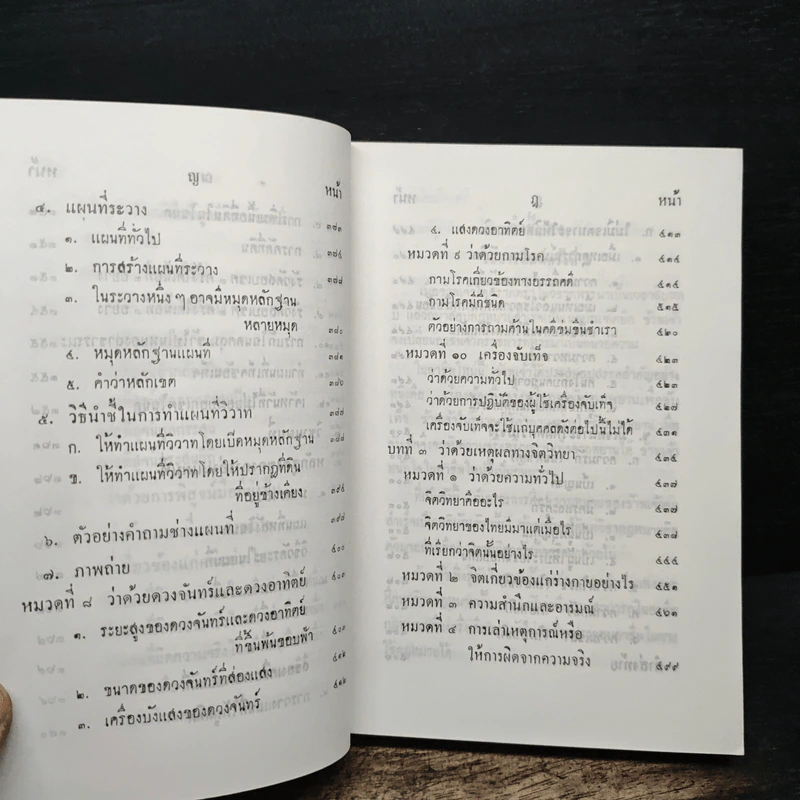 ญ
หน้า
๔. แผนที่ระวาง ๓๗๓
๑. แผนที่ทั่วไป ๓๗๔
๒. การสร้างแผนที่ระวาง ๓๗๘
๓. ในระวางหนึ่ง ๆ อาจมีหมุดหลักฐาน
หลายหมุด ๓๘๐
๔. หมุดหลักฐานแผนที่
๕. คำว่าหลักเขต ๓๘๖
๕. วิธีนำชี้ในการทำแผนที่วิวาท ๓๘๗
ก. ให้ทำแผนที่วิวาทโดยเบ็ดหมุดหลักฐาน ๓๘๘
ข. ให้ทำแผนที่วิวาทโดยให้ปรากฏที่ดิน
ที่อยู่ข้างเคียง ๓๙๔
๖. ตัวอย่างคำถามช่างแผนที่ ๓๙๘
๗. ภาพถ่าย ๔๐๐
หมวดที่ ๘ ว่าด้วยดวงจันทร์และดวงอาทิตย์ ๔๐๙
๑. ระยะสูงของดวงจันทร์และดวงอาทิตย์
ที่ขึ้นพ้นขอบฟ้า ๔๐๙
๒. ขนาดของดวงจันทร์ที่ส่องแสง ๔๑๒
๓. เครื่องบังแสงของดวงจันทร์ ๔๑๒
ฎ
หน้า
๔. แสงดวงอาทิตย์ ๔๑๓
หมวดที่ ๙ ว่าด้วยกามโรค ๔๑๔
กามโรคเกี่ยวข้องทางอรรถคดี ๔๑๔
กามโรคมีกี่ชนิด ๔๑๕
ตัวอย่างการถามค้านในคดีข่มขืนชำเรา ๔๒๐
หมวดที่ ๑๐ เครื่องจับเท็จ ๔๒๓
ว่าด้วยความทั่วไป ๔๒๓
ว่าด้วยการปฏิบัติของผู้ใช้เครื่องจับเท็จ ๔๒๗
เครื่องจับเท็จจะใช้แก่บุคคลดังต่อไปนี้ไม่ได้ ๔๓๑
บทที่ ๓ ว่าด้วยเหตุผลทางจิตวิทยา ๔๓๕
หมวดที่ ๑ ว่าด้วยความทั่วไป ๔๓๗
จิตวิทยาคืออะไร ๔๓๗
จิตวิทยาของไทยมีมาแต่เมื่อไร ๔๓๗
ที่เรียกว่าจิตนั้นอย่างไร ๔๔๔
หมวดที่ ๒ จิตเกี่ยวข้องแก่ร่างกายอย่างไร ๔๕๑
หมวดที่ ๓ ความสำนึกและอารมณ์ ๔๖๑
หมวดที่ ๔ การเล่าเหตุการณ์หรือ
ให้การผิดจากความจริง ๔๙๙